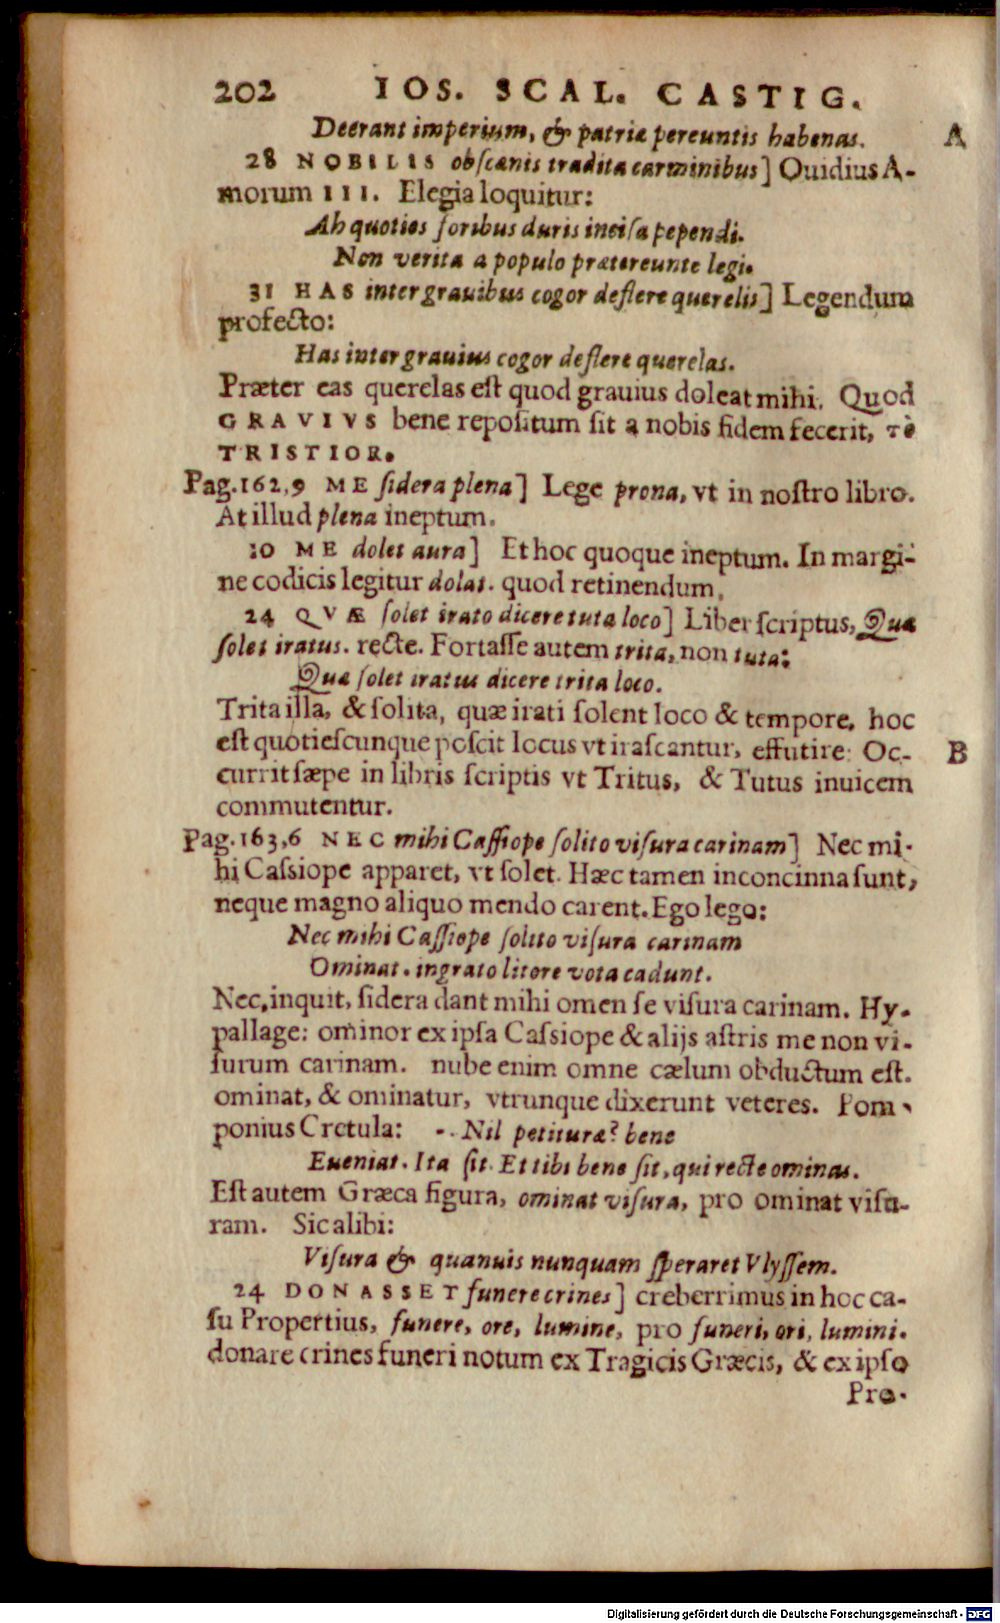 202 IOS. SCAL. CASTIG.
Deerant imperium, & patriæ pereuntis habenas. A
28 NOBILIS obscænis tradita carminibus] Ouidius A-
morum III. Elegia loquitur:
Ah quoties foribus duris incisa pependi.
Non verita a populo prætereunte legi.
31 HAS inter grauibus cogor deflere querelis] Legendum
profecto:
Has inter grauius cogor deflere querelas.
Præter eas querelas est quod grauius doleat mihi. Quod
GRAVIVS bene repositum sit a nobis fidem fecerit, τὸ
TRISTIOR.
Pag. 162,9 ME sidera plena] Lege prona, vt in nostro libro.
At illud plena ineptum.
10 ME dolet aura] Et hoc quoque ineptum. In margi-
ne codicis legitur dolat. quod retinendum.
24 QVÆ solet irato dicere tuta loco] Liber scriptus, Quæ
solet iratus. recte. Fortasse autem trita, non tuta:
Quæ solet iratus dicere trita loco.
Trita illa, & solita, quæ irati solent loco & tempore, hoc
est quotiescunque poscit locus vt irascantur, effutire. Oc- B
currit sæpe in libris scriptis vt Tritus, & Tutus inuicem
commutentur.
Pag. 163,6 NEC mihi Cassiope solito visura carinam] Nec mi-
hi Cassiope apparet, vt solet. Hæc tamen inconcinna sunt,
neque magno aliquo mendo carent. Ego lego:
Nec mihi Cassiope solito visura carinam
Ominat. ingrato litore vota cadunt.
Nec, inquit, sidera dant mihi omen se visura carinam. Hy-
pallage: ominor ex ipsa Cassiope & alijs astris me non vi-
surum carinam. nube enim omne cælum obductum est.
ominat, & ominatur, vtrunque dixerunt veteres. Pom-
ponius Cretula: -- Nil petituræ? bene
Eueniat. Ita sit. Et tibi bene sit, qui recte ominas.
Est autem Græca figura, ominat visura, pro ominat visu-
ram. Sic alibi:
Visura & quanuis nunquam speraret Vlyssem.
24 DONASSET funere crines] creberrimus in hoc ca-
su Propertius, funere, ore, lumine, pro funeri, ori, lumini.
donare crines funeri notum ex Tragicis Græcis, & ex ipso
Pro-
Digitalisierung gefördert durch die Deutsche Forschungsgemeinschaft - DFG